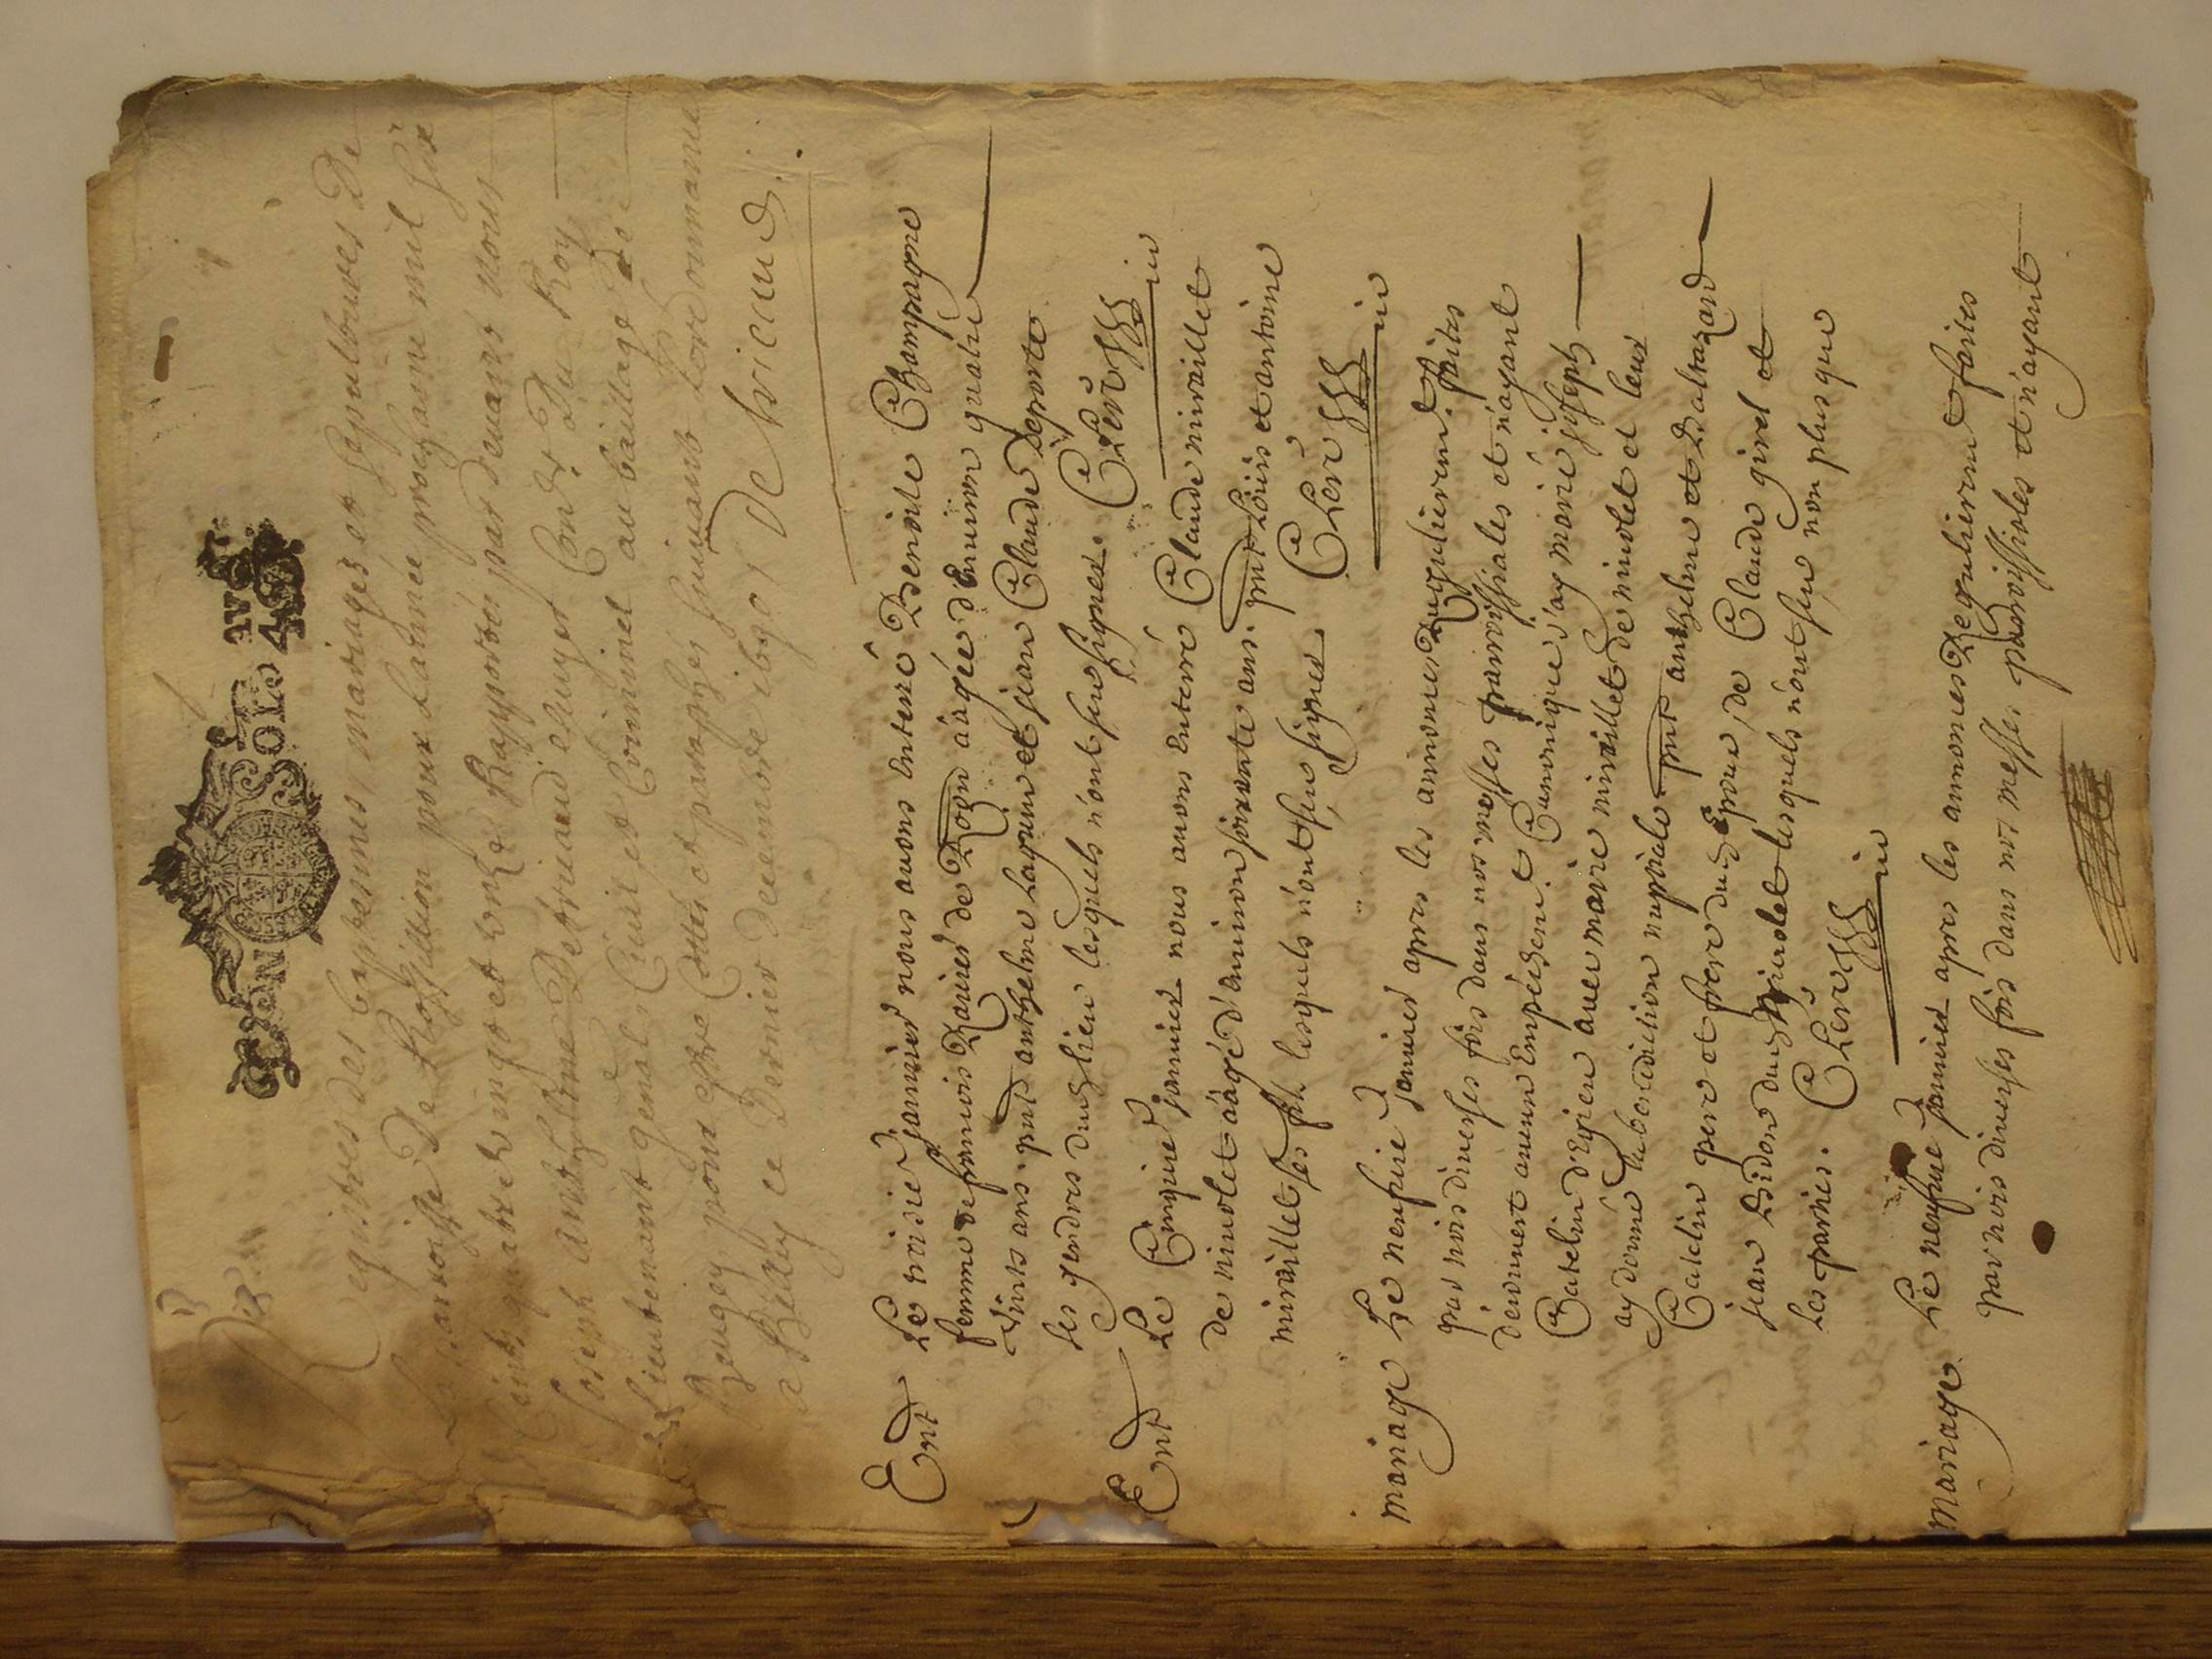 Registres des baptesmes, mariages et sepultures De
la paroisse De Rossillion pour L'année prochaine mil six
Cents quatre vingt et onze Rapportés par devant Nous
Joseph Anthelme Detrivaud escuyer Con.er Du Roy
Lieutenant general Civil et Criminel au bailliage De
Beugey pour estre Cottés et paraphés suivant Lordonnance
a Belley ce Dernier decembre 1690 / De trivaud.
Ent
Le troisie janvier nous avons enterré Benoite Champagne
femme de francois Ravier de Rogn aágée d'environ quatre
vints ans. pnt anthelme Lagoune et jean Claude Deporte
ses gendres dud lieu lesquels n'ont seu signer. Cleri
Ent
Le Cinquie janvier nous avons enterré Claude miraillet
de mirolet aágé d'anviron soixante ans. pnt Loüis et antoine
miraillet ses fils lesquels n'ont seu signer. Cleri
mariage
Le neufvie janvier apres les annonces Regulierem.t faites
par trois diverses fois dans nos messes parroissiales et n'ayant
deuvnert aucun Empéchem.t Canonique j'ay marié joseph
Catelin d'Epieu avec marie miraillet de mirolet et leur
ay donné la benediction nuptiale pnt anthelme et Baltazard
Catelin pere et frere dud Epoux, de Claude girel et
jean Bidon dud mirolet lesquels n'ont seu non plus que
les parties. Cleri
Mariage
Le neufvie janvier apres les annonces Regulierem.t faites
par trois diverses fois dans nos messes paroissiales et n'ayant